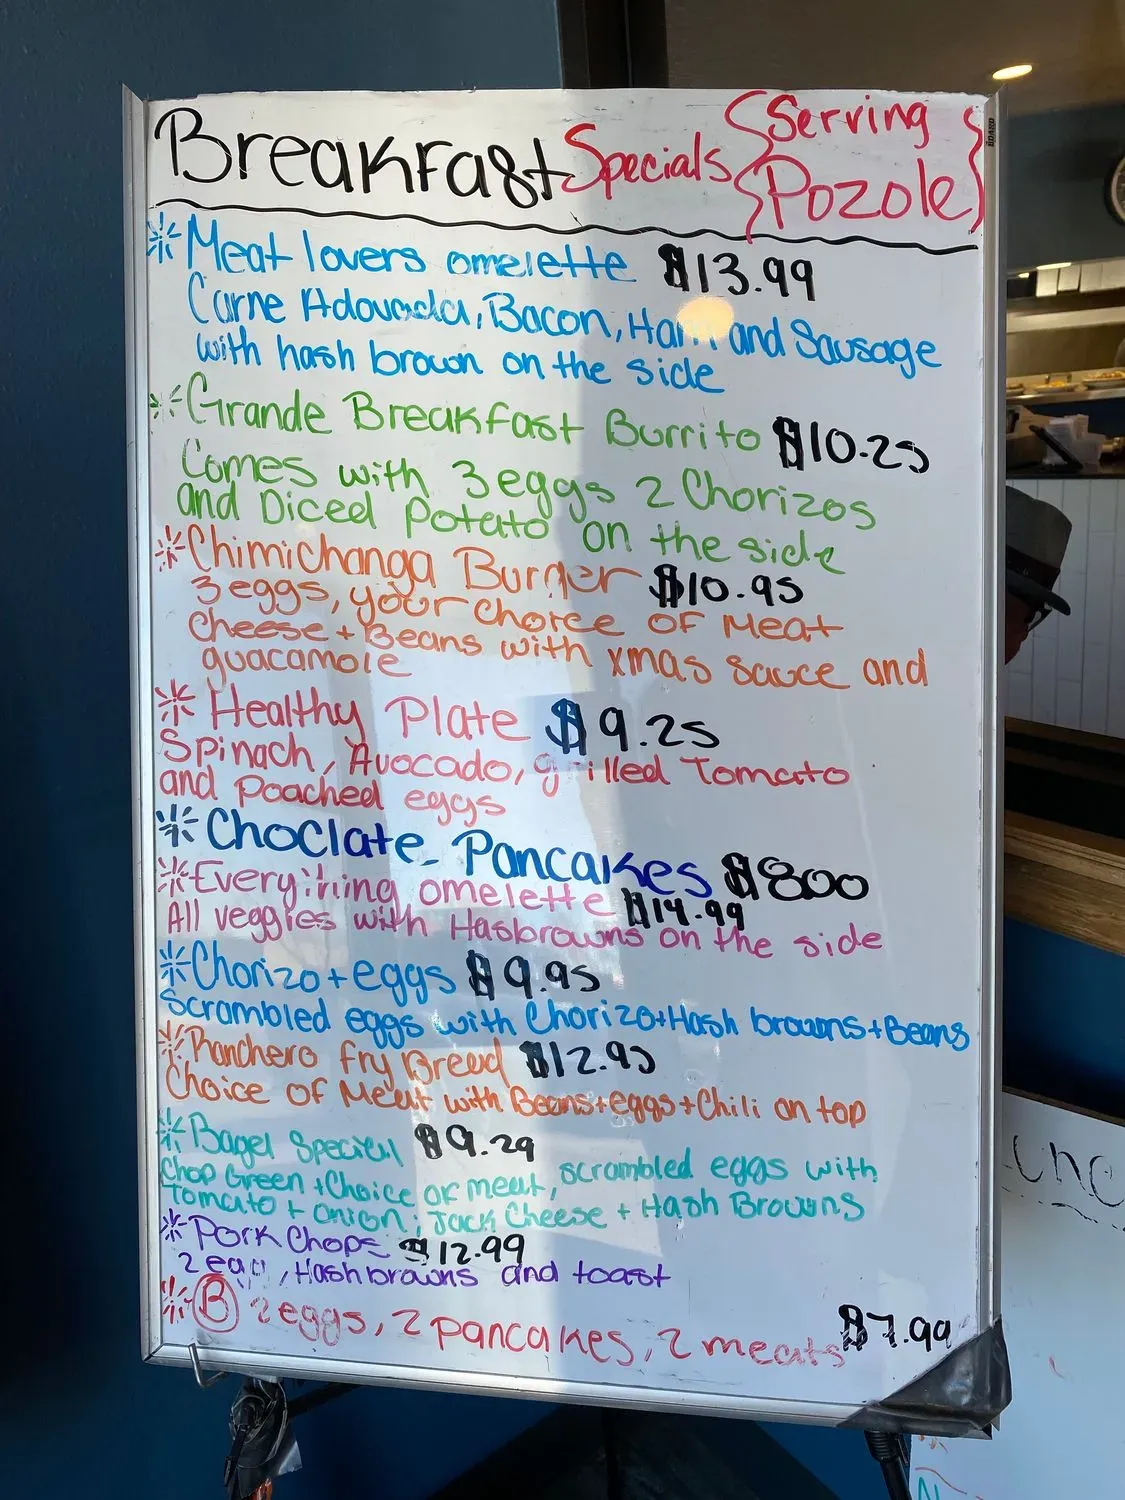 Breakfast Specials {Serving Pozole}
Meat lovers omelette $13.99
Carne Adovada, Bacon, Ham and Sausage
with hash brown on the side
Grande Breakfast Burrito $10.25
Comes with 3 eggs 2 Chorizos
and Diced Potato on the side
Chimichanga Burger $10.95
3 eggs, your Choice of Meat
Cheese + Beans with xmas sauce and
guacamole
Healthy Plate $9.25
Spinach, Avocado, grilled Tomato
and Poached eggs
Choclate Pancakes $8.00
Everything omelette $14.99
All veggies with Hasbrowns on the side
Chorizo + eggs $9.95
Scrambled eggs with Chorizo + Hash browns + Beans
Ranchero Fry Bread $12.95
Choice of Meat with Beans + eggs + Chili on top
Bagel Special $9.29
Chop Green + Choice of meat, scrambled eggs with
Tomato + onion, Jack Cheese + Hash Browns
Pork Chops $12.99
2 egg, Hashbrowns and toast
B 2 eggs, 2 pancakes, 2 meats $7.99